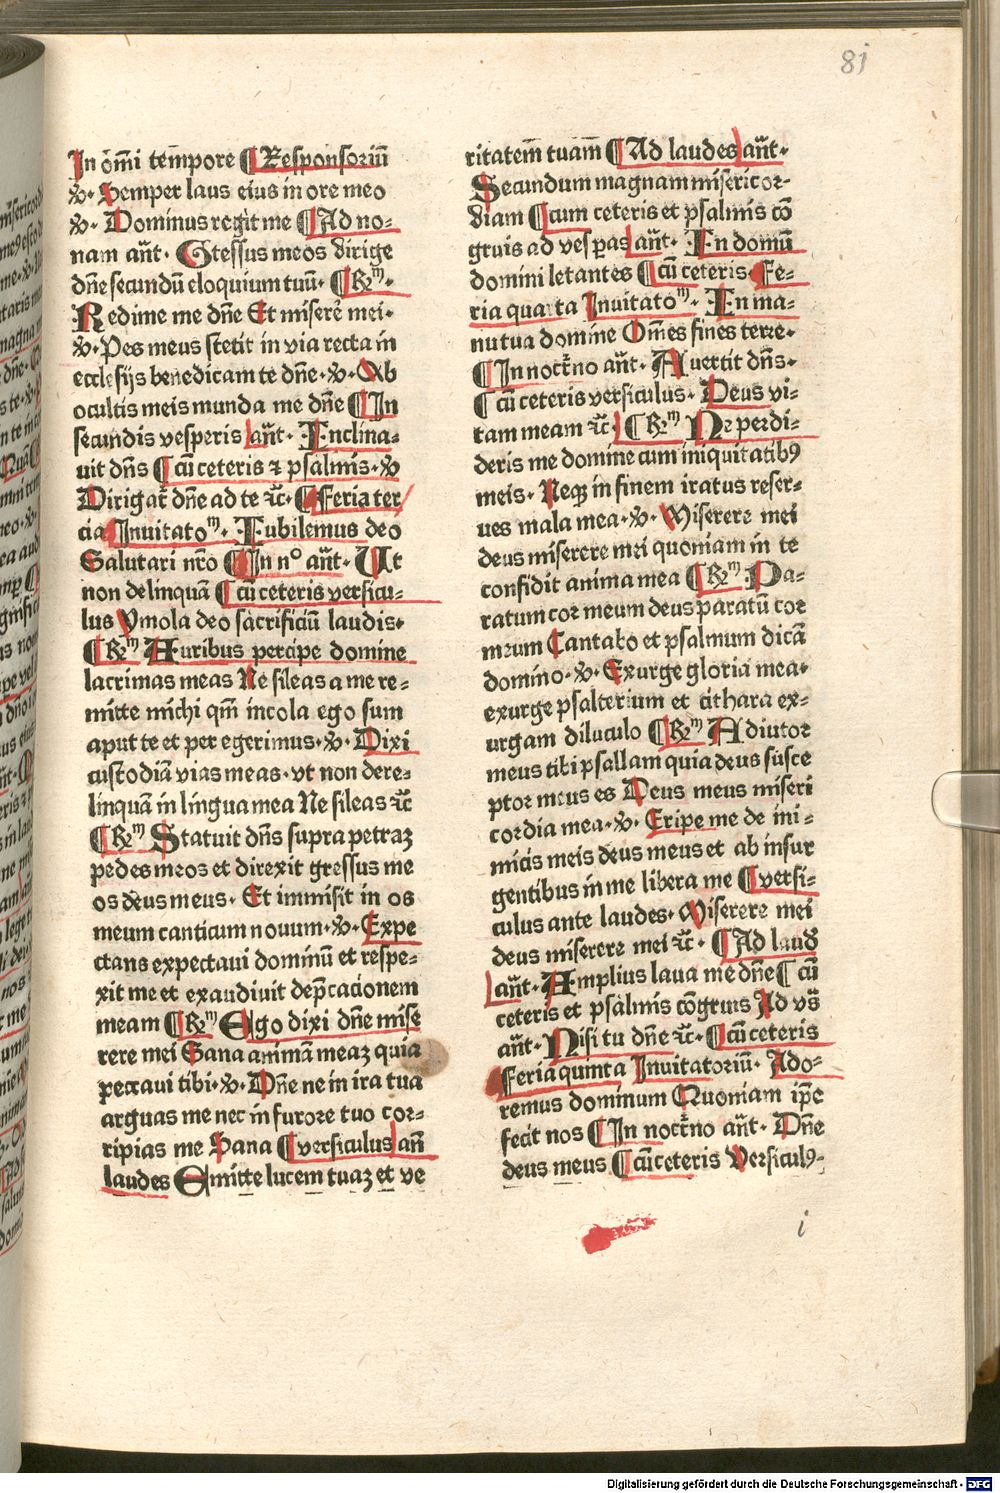 81
In om̄i tempore ¶ Responsoriū
℣· Semper laus eius in ore meo
℣· Dominus regit me ¶ Ad no-
nam an̄t· Gressus meos dirige
dn̄e secundū eloquium tuū· ¶ Rm·
Redime me dn̄e Et miserē mei·
℣· Pes meus stetit in via recta in
ecclesijs benedicam te dn̄e·℣· Ab
ocultis meis munda me dn̄e ¶ In
secundis vesperis an̄t· Inclina-
uit dn̄s ¶ cū ceteris ⁊ psalmis·℣
Dirigat̄ dn̄e ad te ⁊c̄· ¶ Feria ter
cia Inuitatom· Iubilemus deo
Salutari nr̄o ¶ In no an̄t· Ut
non delinquā ¶ cū ceteris versicu-
lus Ymola deo sacrificiū laudis·
¶ Rm Auribus percipe domine
lacrimas meas Ne sileas a me re-
mitte michi qm̄ incola ego sum
aput te et peregerimus·℣· Dixi
custodiā vias meas· vt non dere-
linquā in lingua mea Ne sileas ⁊c̄
¶ Rm Statuit dn̄s supra petraꝫ
pedes meos et direxit gressus me
os deus meus· Et immisit in os
meum canticum nouum·℣· Expe
ctans expectaui dominū et respe-
xit me et exaudiuit dep̄cationem
meam ¶ Rm Ego dixi dn̄e mise
rere mei Sana animā meaꝫ quia
peccaui tibi·℣· Dn̄e ne in ira tua
arguas me nec in furore tuo cor-
ripias me Sana ¶ versiculus an̄
laudes Emitte lucem tuaꝫ et ve
ritatem̄ tuam̄ ¶ Ad laudes an̄t·
Secundum magnam misericor-
diam ¶ cum ceteris et psalmis cō
gruis ad vesperas an̄t· In domū
domini letantes ¶ cū ceteris· Fe-
ria quarta Inuitatom· In ma-
nu tua domine Om̄es fines terre·
¶ In noct̄no an̄t· Auertit dn̄s·
¶ cū ceteris versiculus· Deus vi-
tam meam ⁊c̄· ¶ Rm Ne perdi-
deris me domine cum iniquitatibꝰ
meis· Neqꝫ in finem iratus reser-
ues mala mea·℣· Miserere mei
deus miserere mei quoniam in te
confidit anima mea ¶ Rm· Pa-
ratum cor meum deus paratū cor
meum Cantabo et psalmum dicā
domino·℣· Exurge gloria mea·
exurge psalterium et cithara ex-
urgam diluculo ¶ Rm Adiutor
meus tibi psallam quia deus susce
ptor meus es Deus meus miseri
cordia mea·℣· Eripe me de ini-
micis meis deus meus et ab insur
gentibus in me libera me ¶ versi-
culus ante laudes· Miserere mei
deus miserere mei ⁊c̄· ¶ Ad laud
an̄t· Amplius laua me dn̄e ¶ cū
ceteris et psalmis cōgruis Ad vs̄
an̄t· Nisi tu dn̄e ⁊c̄· ¶ cū ceteris
Feria quinta Inuitatoriū· Ado-
remus dominum Quoniam ip̄e
fecit nos ¶ In noct̄no an̄t· Dn̄e
deus meus ¶ cū ceteris Versiculꝰ·
i
Digitalisierung gefördert durch die Deutsche Forschungsgemeinschaft - DFG